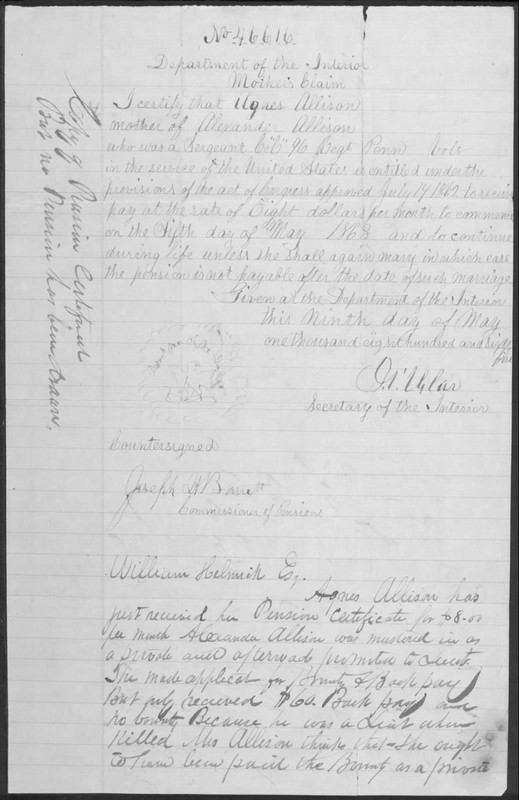 No 46616
Department of the Interior
Mother's Claim
I certify that Agnes Allison
mother of Alexander Allison
who was a Sergeant Co "C" 76 Regt Penn Vols
in the service of the United States is entitled under the
provisions of the act of Congress approved July 14 1862 to receive
pay at the rate of Eight dollars per month to commence
on the Fifth day of May 1863 and to continue
during life unless she shall again marry in which case
the pension is not payable after the date of such marriage
Given at the Department of the Interior
this Ninth day of May
one thousand eight hundred and sixty
five
Secretary of the Interior
Countersigned
Joseph H Barrett
Commissioner of Pensions
William Helmick Esq.
Agnes Allison has
just received her Pension Certificate for $8.00
per month Alexander Allison was mustered in as
a private and afterwads promoted to Lieut.
She made applicat for Bounty & Back pay
But only recieved $60. Back pay and
no bounty Because he was a Lieut when
Killed Mrs Allison thinks that She ought
to have been paid the Bounty as a private
Copy of Pension Certificat
But no Pension has been drawn.